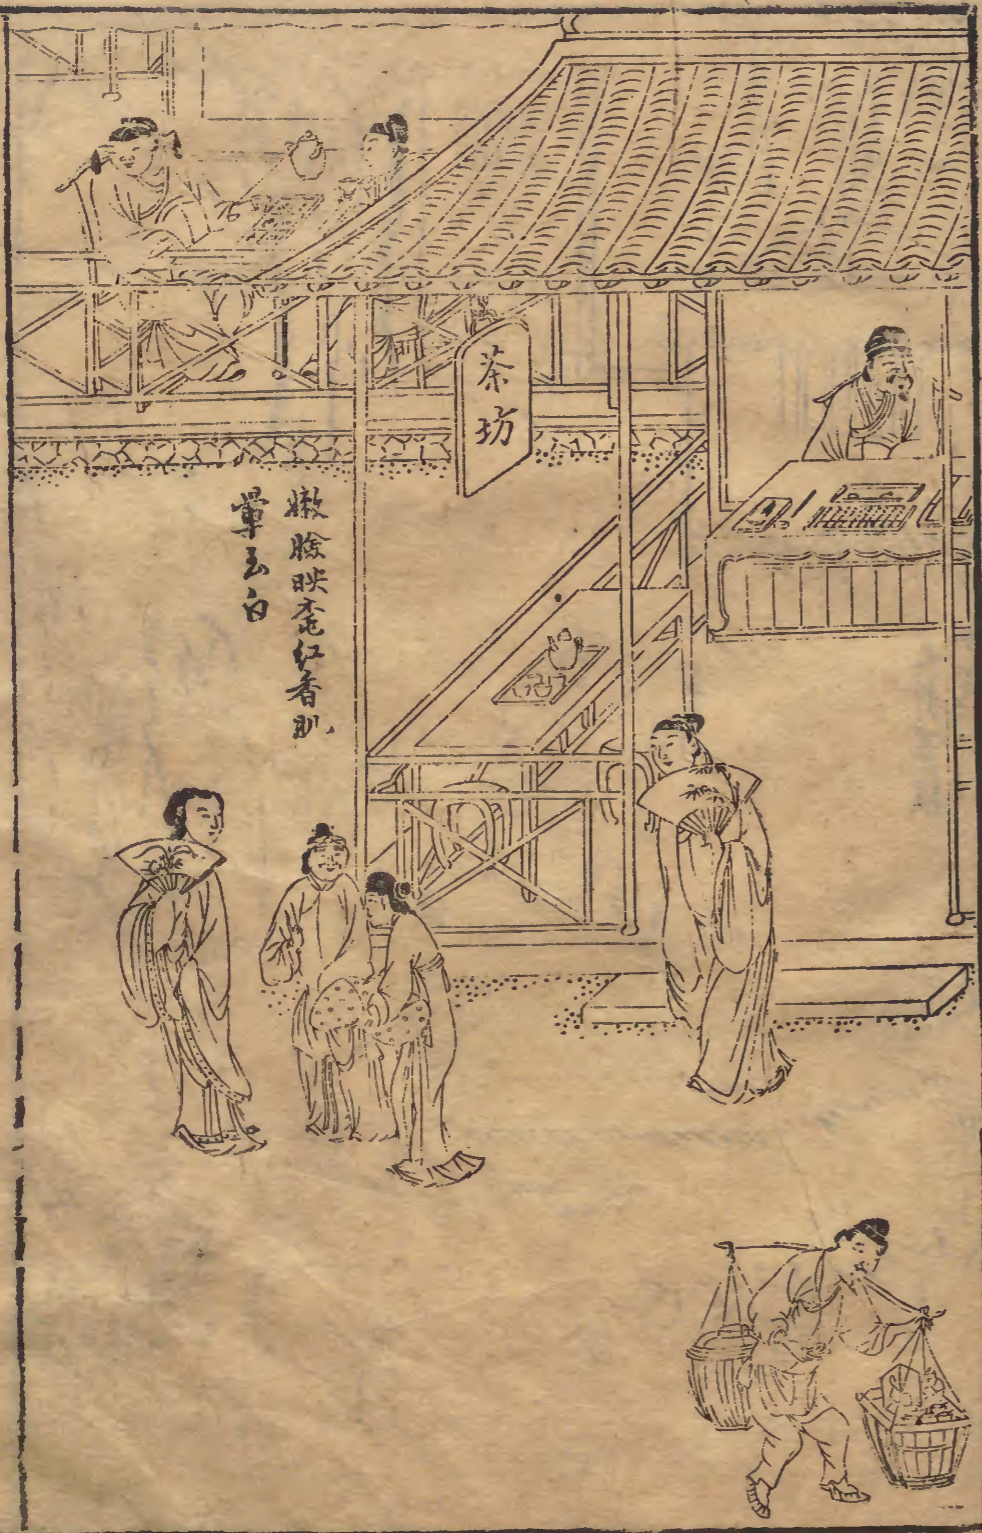 茶坊
嫩臉映桃紅香肌
暈玉白